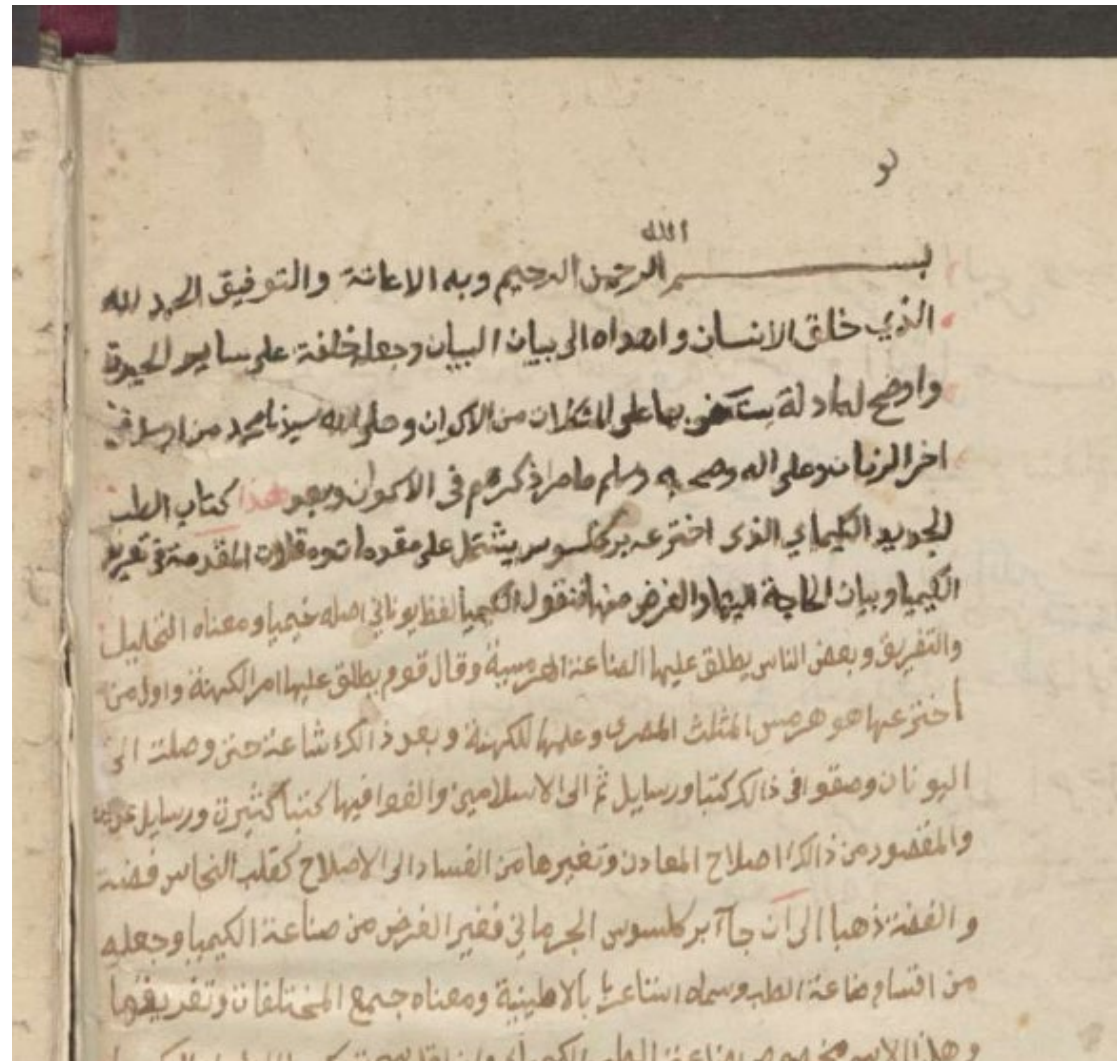 الله
بسم الرحمن الرحيم وبه الاعانة والتوفيق الحمد لله
الذي خلق الانسان واهداه الى بيان البيان وجعله خلفة على ساير
واوضح له ادلة بها على المشكلات من الاكوان وصلى الله سيدنا محمد من ارسل في
اخر الزمان وعلى اله وصحبه وسلم ذكرهم في الاكوان وبعد هذا كتاب الطب
الجديد الكيماي الذي اخترعه بركلسوس يشتمل على مقدمات ومقالات المقدمة في تعريف
الكيميا وبيان الحاجة اليها والغرض منها فنقول الكيميا لفظ يوناني اصله خيميا ومعناه التحليل
والتفريق وبعض الناس يطلق عليها الصناعة الهرمسية وقال قوم يطلق عليها امر الكهنة واول من
اخترعها هو هرمس المثلث المصري وعلمها للكهنة وبعد ذالك شاعة حتى وصلت الى
اليونان وصفوا في ذالك كتبا ورسايل ثم الى الاسلاميين والفوا فيها كتبا كثيرة ورسايل
والمقصود من ذالك اصلاح المعادن وتغيرها من الفساد الى الاصلاح كقلب النحاس فضة
والفضة ذهبا الى ان جآ بركلسوس الجرماني فغير الغرض من صناعة الكيميا وجعله
من اقسام صناعة الطب وسماه بالاطينية ومعناه جميع المختلفات وتفريقها
وهذا الاسم صناعة الطب